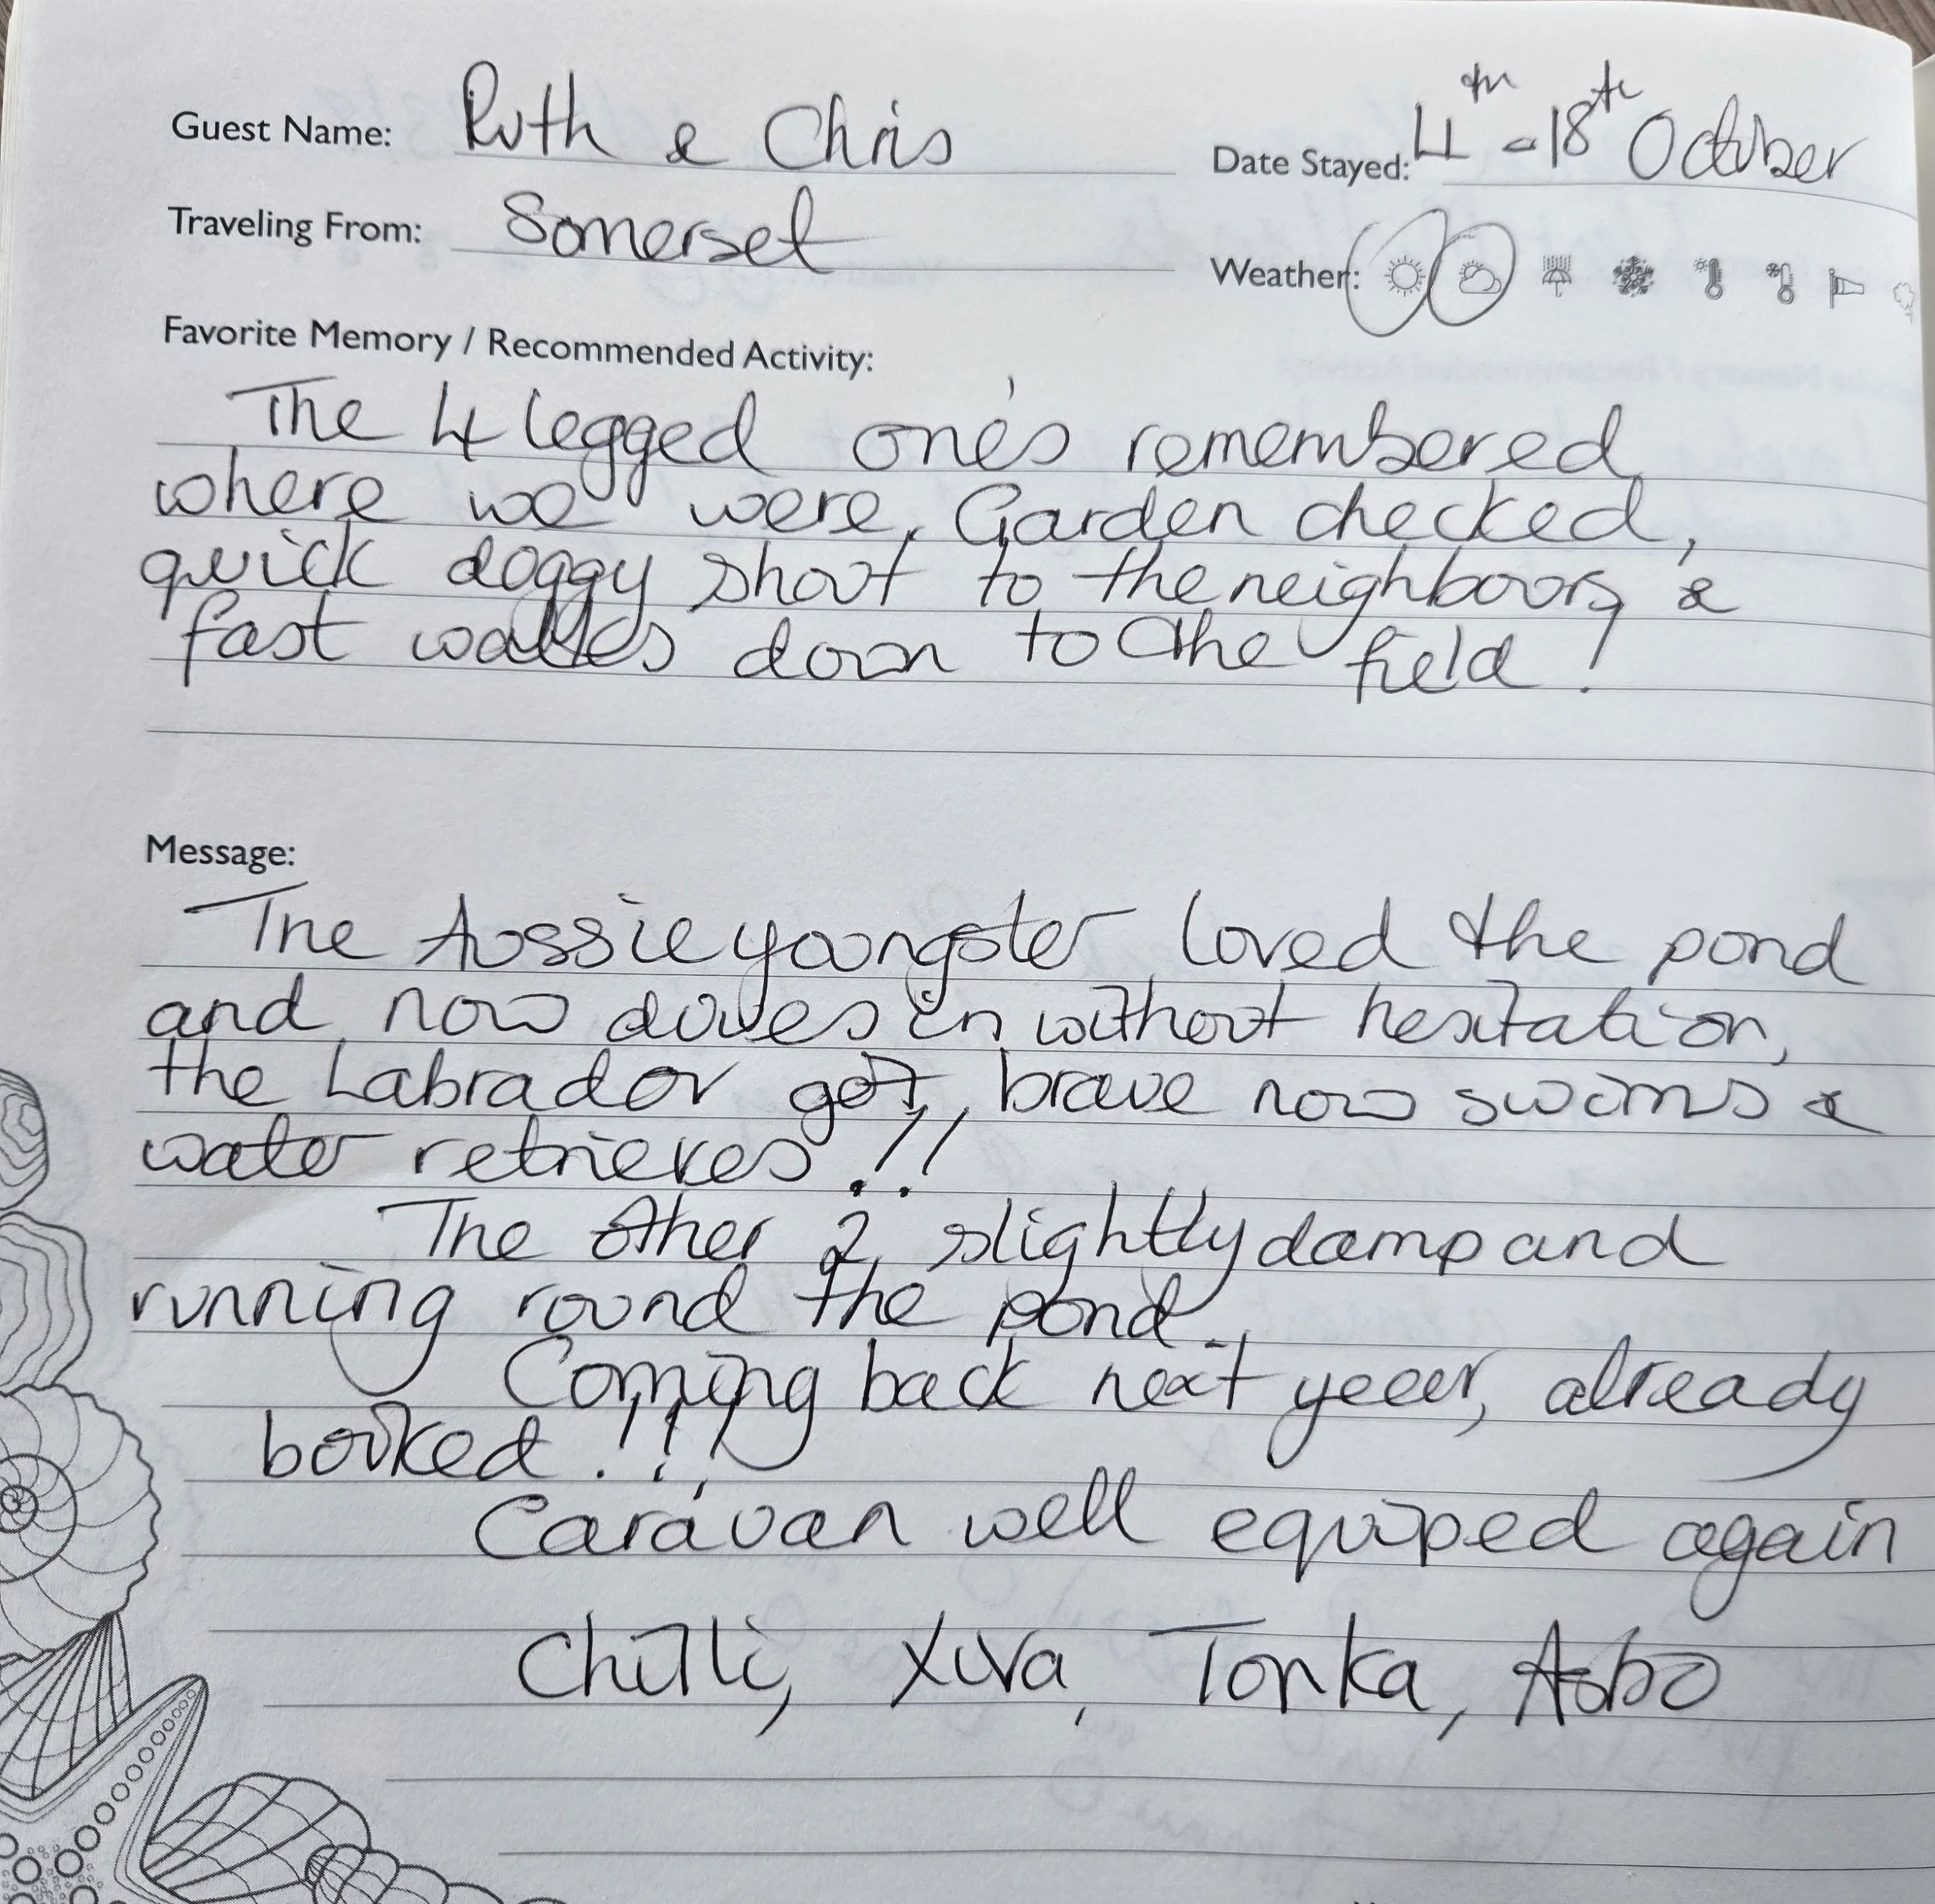 Guest Name: Ruth & Chris
Date Stayed: 4th - 18th October
Traveling From: Somerset
Weather:
Favorite Memory / Recommended Activity:
The 4 legged one's remembered
where we were. Garden checked,
quick doggy shout to the neighbours &
fast walkes down to the field!
Message:
The Aussie youngster loved the pond
and now dives in without hesitation,
the Labrador got brave now swims &
water retrieves!!
The other 2 slightly damp and
running round the pond.
Coming back next year, already
booked!!!
Caravan well equiped again
Chilli, Tonka,